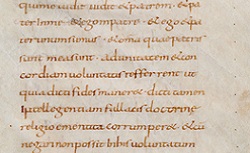 quim& uidit uidit & patrem · & pa
ter in me · & ego in patre · & ego & pa
ter unum sumus · & omnia quae patris
sunt mea sunt · ad unitatem & con
cordiam uoluntatis referrent ut
quia dicti fides manere dictionum
intellegentium fallacis doctrine
religio emenita corrumperet & cu
negari non possit his uoluntatum